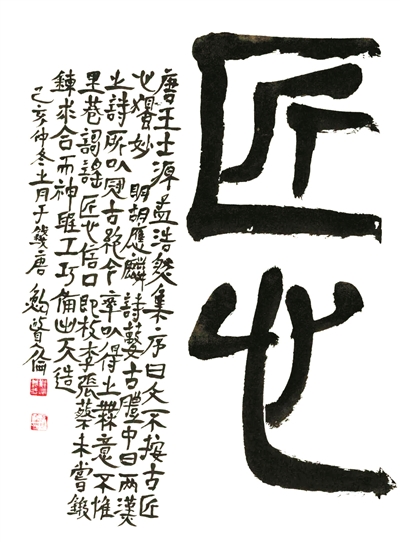 匠心
唐王士源孟浩然集序曰文不按古匠
心獨妙 明胡應麟詩藪古體中曰兩漢
之詩所以冠古絕今率以得之無意不惟
里巷謳謠匠心信口即枚李張蔡未嘗鍛
鍊求合而神聖工巧備出天造
己亥仲冬上月于雙唐